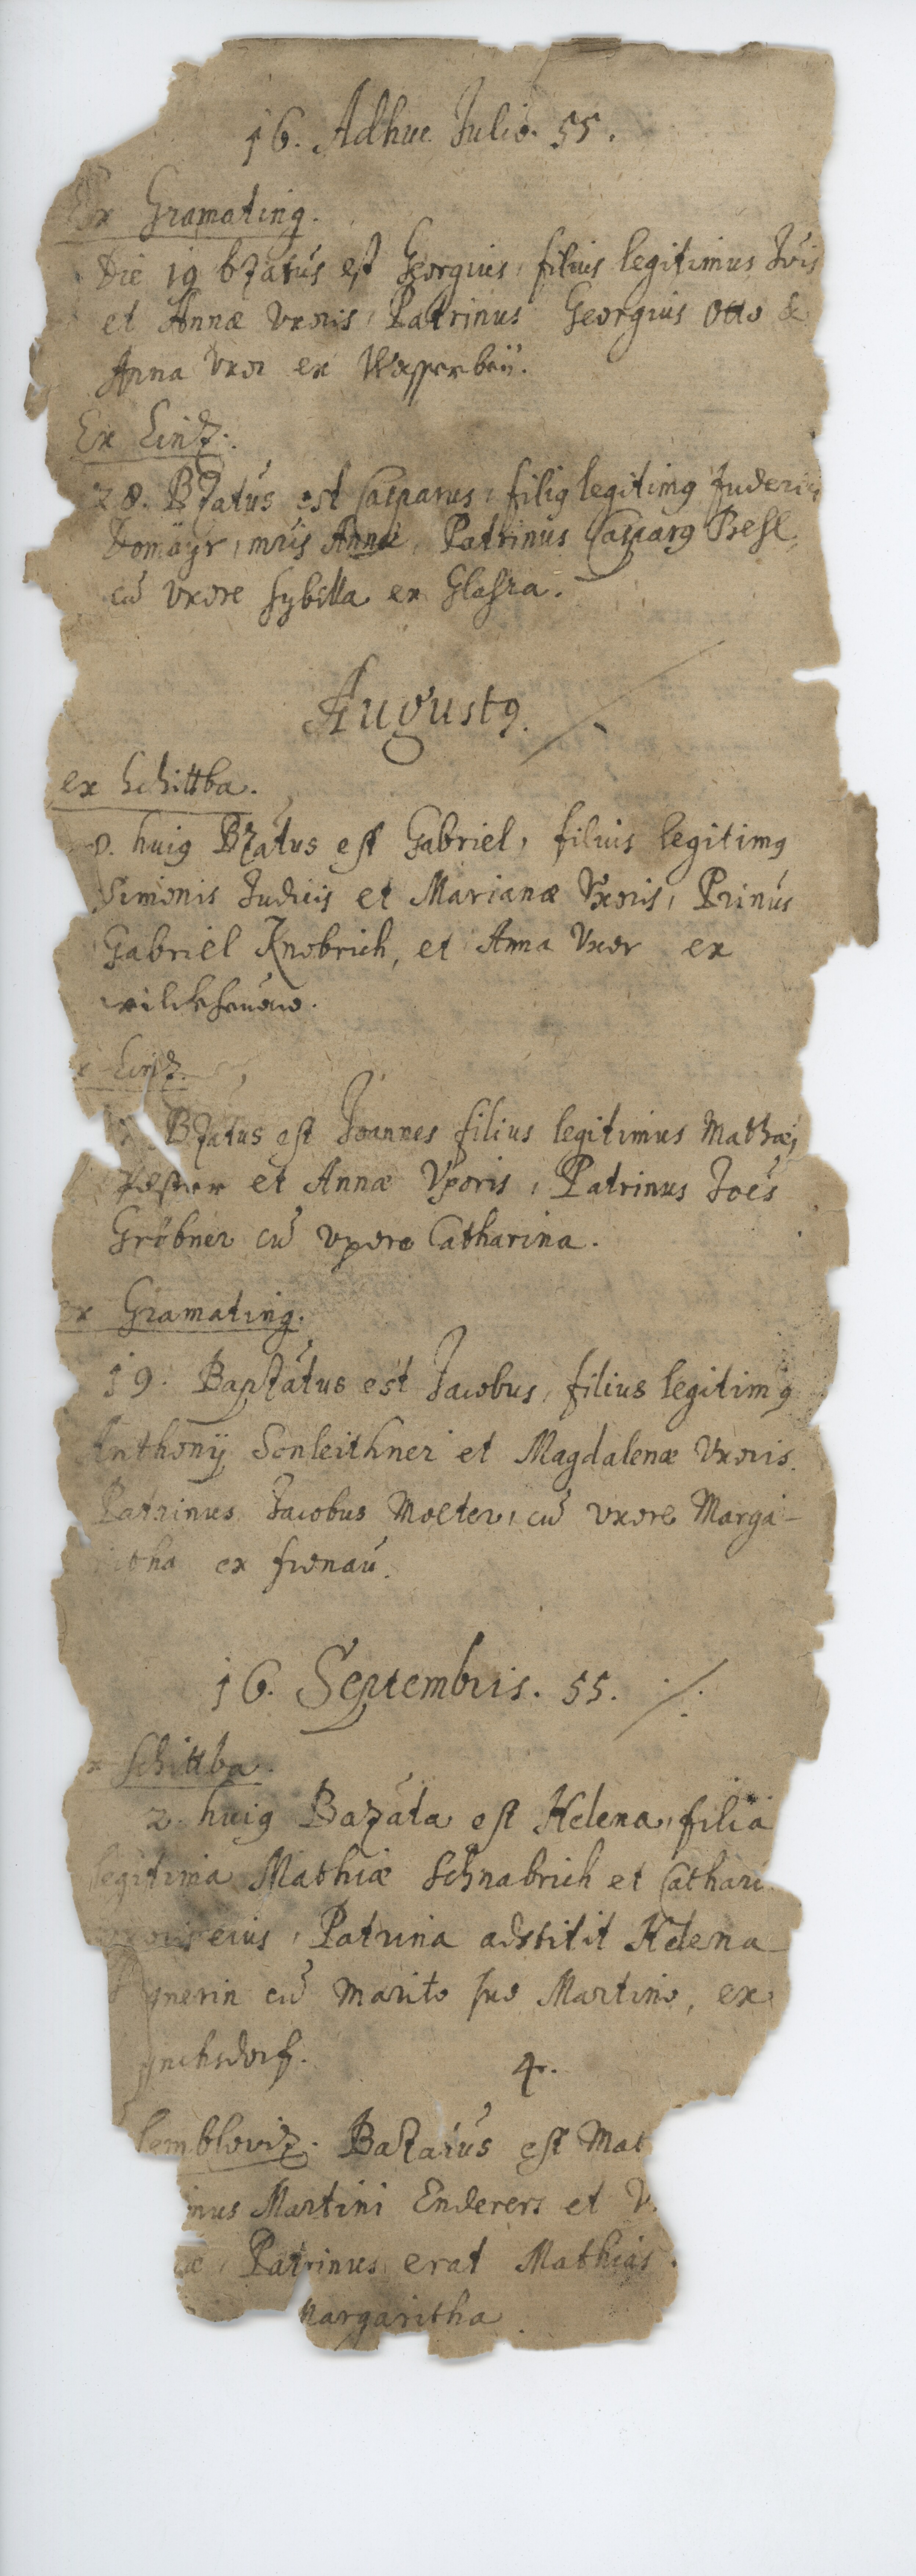 16. Adhuc Julio. 55.
Ex Gramating.
Die 19 bzatus est Georgius, filius legitimus Jois
et Annæ Vxoris, Patrinus Georgius Otto &
Anna Vxor ex
Ex Lintz.
28. Bzatus est Casparus, filig legitimg
Domäyr, mris Annæ, Patrinus Casparg
cū vxore Sybilla ex
August9.
ex Schittba.
8. huig Bzatus est Gabriel, filius legitimg
Simonis Judicis et Marianæ Vxoris, Prinus
Gabriel Knobrich, et Anna Vxor ex
x Lintz.
Bzatus est Joannes filius legitimus Mathæi
et Annæ Vxoris, Patrinus Joēs
Gröbner cū vxore Catharina.
ex Gramating.
19. Baptatus est Jacobus, filius legitimg
Anthonij Sonleithner et Magdalenæ Vxoris.
Patrinus Jacobus Molter, cū vxore Marga-
ritha ex
16. Septembris. 55.
x Schittba.
2. huig Bazata est Helena, filia
legitima Mathiæ Schnabrich et Cathari
eius, Patrina adstitit Helena
gnerin cū Marito suo Martino, ex
4.
Bazatus est Mat
inus Martini Enderers et V
æ, Patrinus erat Mathias
Margaritha